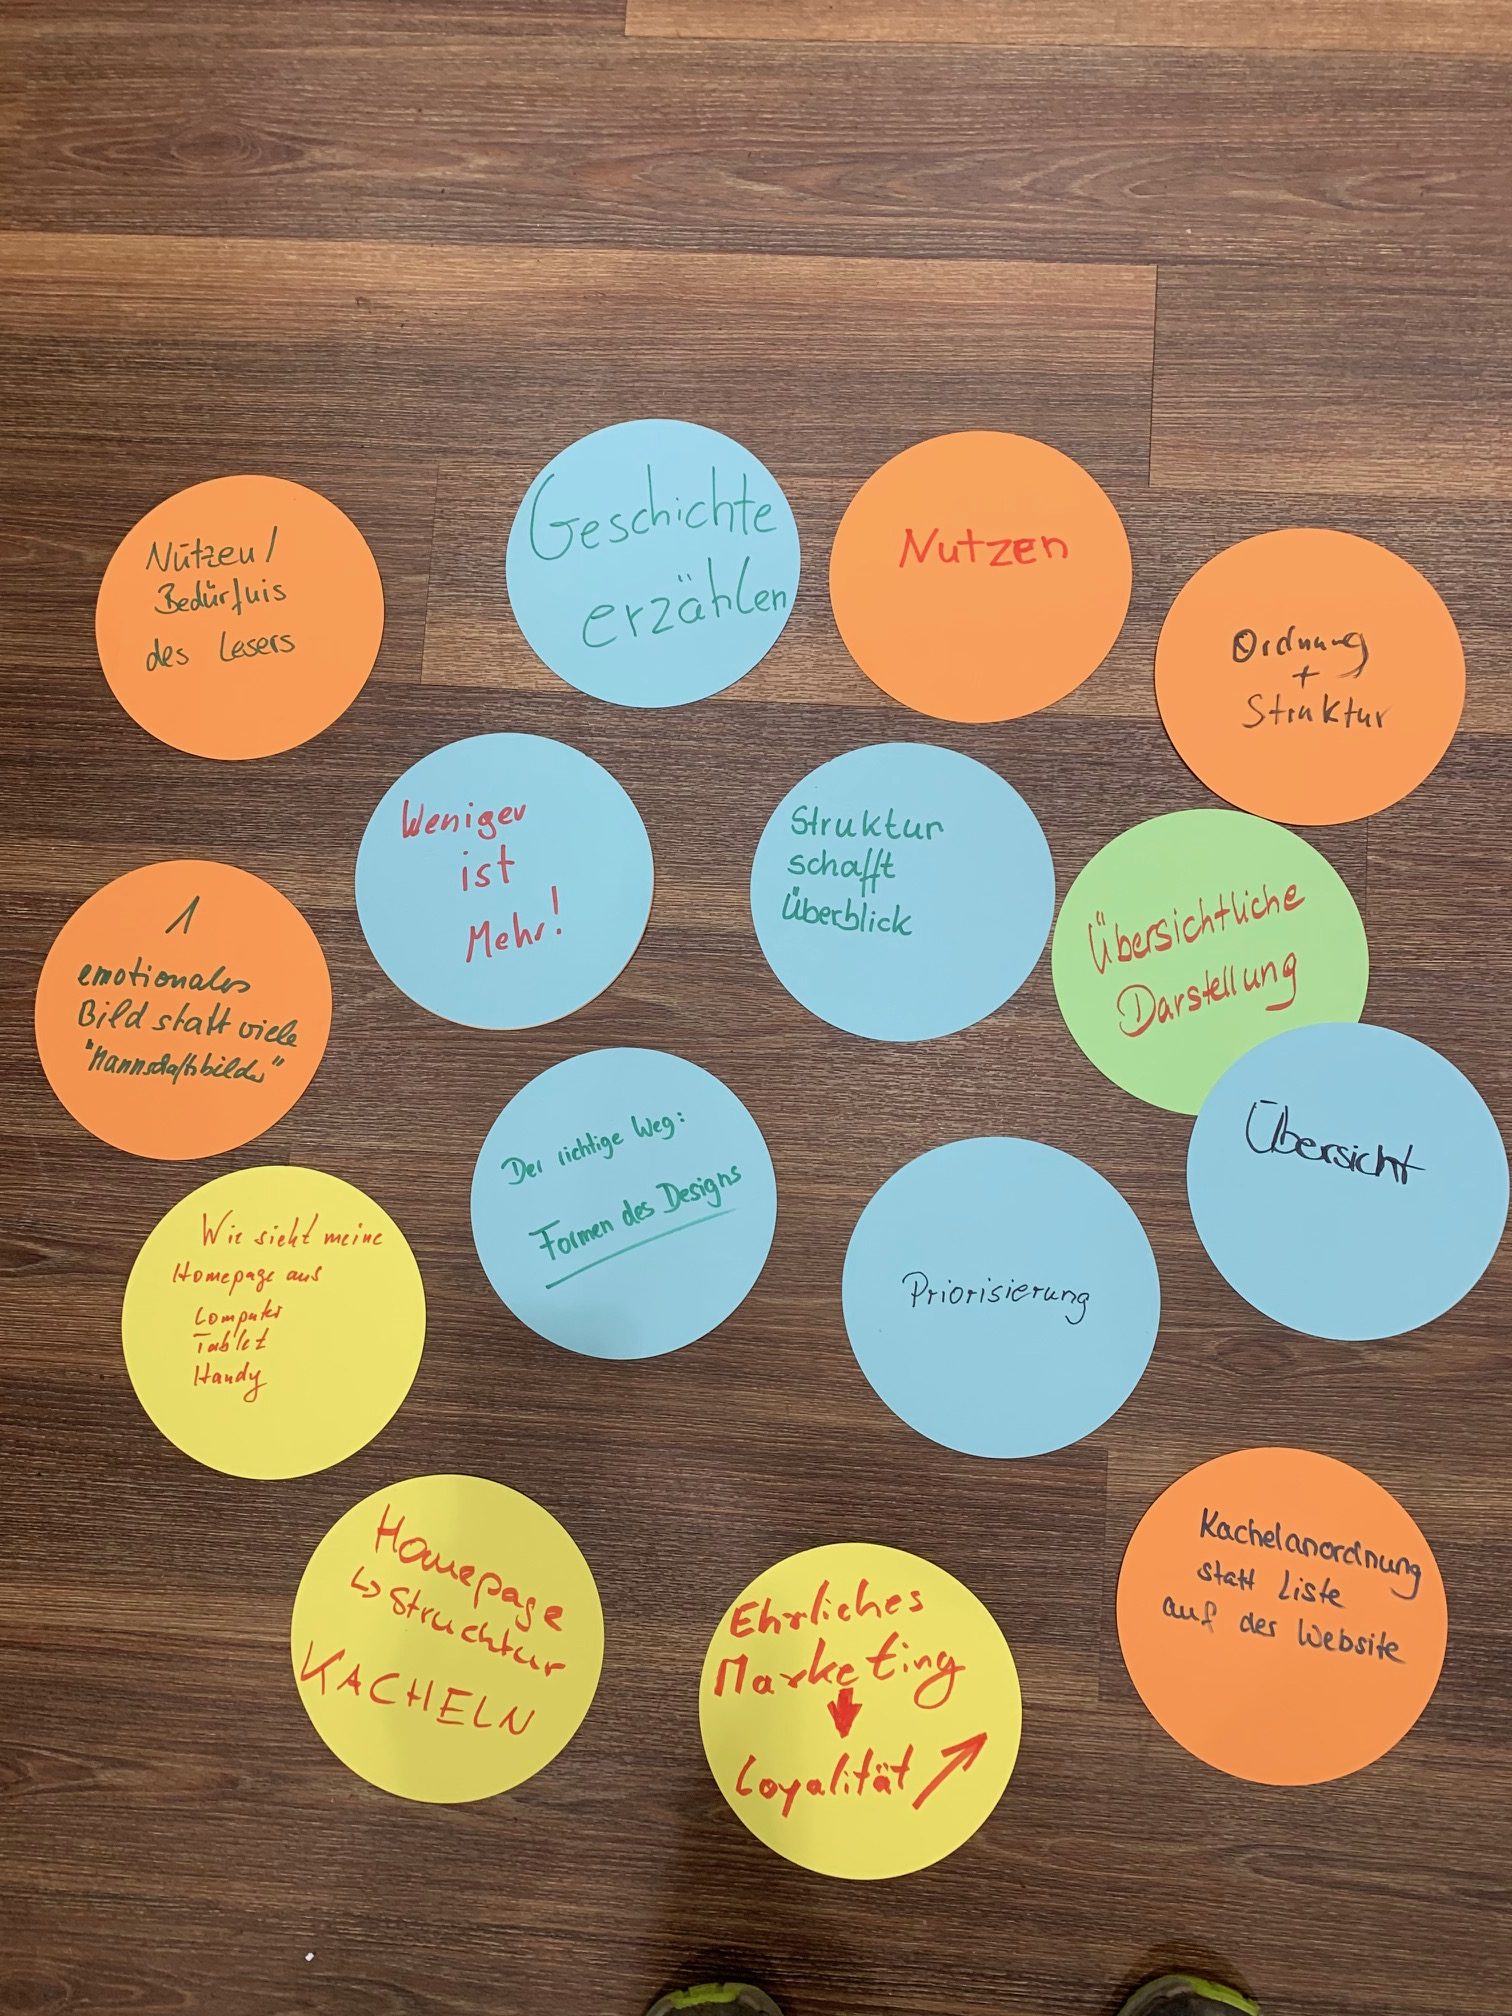 Nutzen /
Bedürfnis
des Lesers
Geschichte
erzählen
Nutzen
Ordnung
+
Struktur
Weniger
ist
Mehr!
Struktur
schafft
Überblick
Übersichtliche
Darstellung
1
emotionales
Bild statt viele
"Mannschaftsbilder"
Der richtige Weg:
Formen des Designs
Übersicht
Priorisierung
Wie sieht meine
Homepage aus
Computer
Tablet
Handy
Homepage
↳ Struchtur
KACHELN
Ehrliches
Marketing
↓
Loyalität ↗
Kachelanordnung
statt Liste
auf der Website